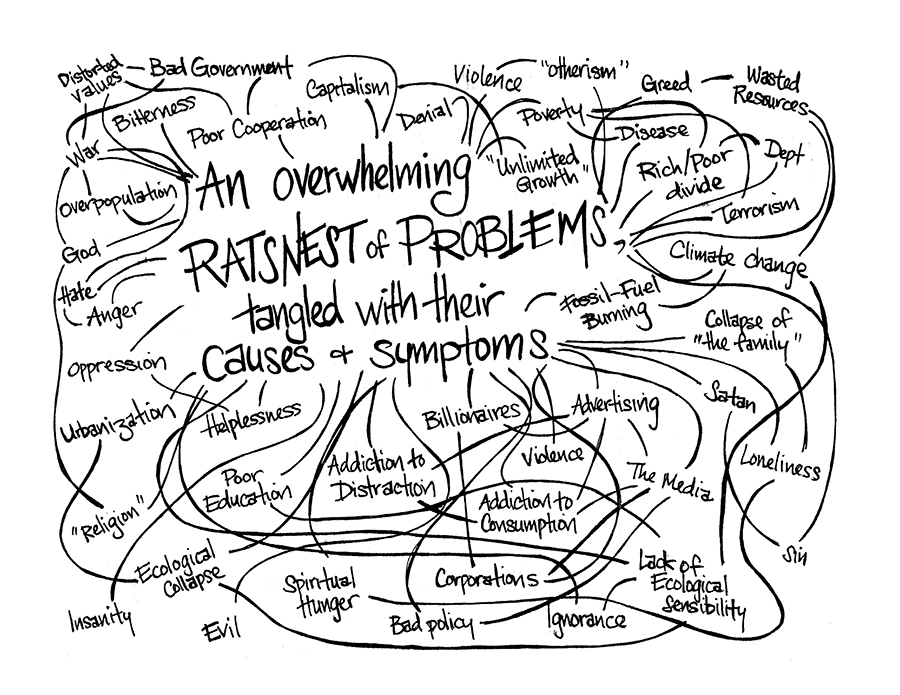 Distorted
values
Bad Government
Capitalism
Violence
"otherism"
Greed
Wasted
Resources
Bitterness
Poor Cooperation
Denial
Poverty
Disease
War
An overwhelming
"Unlimited
Growth"
Rich/Poor
divide
Dept
Overpopulation
Terrorism
RATSNEST of PROBLEMS
God
Climate change
Hate
Anger
tangled with their
Fossil-Fuel
Burning
Collapse of
"the family"
causes & symptoms
Oppression
Satan
Urbanization
Helplessness
Billionaires
Advertising
Violence
Loneliness
Poor
Education
Addiction to
Distraction
The Media
"Religion"
Addiction to
Consumption
Sin
Ecological
Collapse
Spiritual
Hunger
Corporations
Lack of
Ecological
Sensibility
Insanity
Evil
Bad policy
Ignorance